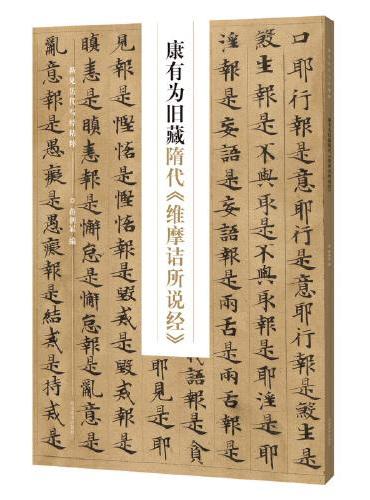 口耶行報是意耶行是意耶行報是煞生是
煞生報是不與取是不與取報是耶淫是耶
淫報是妄語是妄語報是兩舌是兩舌報是
語報是
耶見是耶
康有为旧藏隋代《维摩诘所说经》
見報是慳悋是慳悋報是毀戒是毀戒報是
瞋恚是瞋恚報是懈怠是懈怠報是亂意是
亂意報是愚癡是愚癡報是結戒是持戒是
新见历代写经精粹